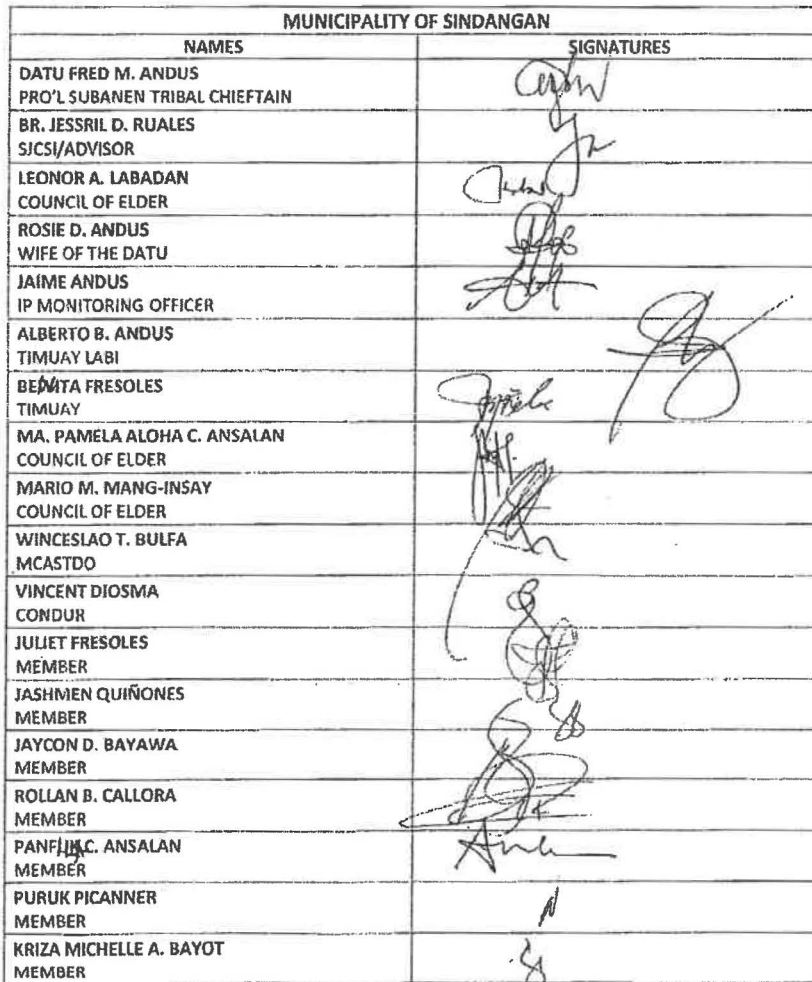 MUNICIPALITY OF SINDANGAN
NAMES SIGNATURES
DATU FRED M. ANDUS
PRO'L SUBANEN TRIBAL CHIEFTAIN
BR. JESSRIL D. RUALES
SJCSI/ADVISOR
LEONOR A. LABADAN
COUNCIL OF ELDER
ROSIE D. ANDUS
WIFE OF THE DATU
JAIME ANDUS
IP MONITORING OFFICER
ALBERTO B. ANDUS
TIMUAY LABI
BENITA FRESOLES
TIMUAY
MA. PAMELA ALOHA C. ANSALAN
COUNCIL OF ELDER
MARIO M. MANG-INSAY
COUNCIL OF ELDER
WINCESLAO T. BULFA
MCASTDO
VINCENT DIOSMA
CONDUR
JULIET FRESOLES
MEMBER
JASHMEN QUIÑONES
MEMBER
JAYCON D. BAYAWA
MEMBER
ROLLAN B. CALLORA
MEMBER
C. ANSALAN
MEMBER
PURUK PICANNER
MEMBER
KRIZA MICHELLE A. BAYOT
MEMBER